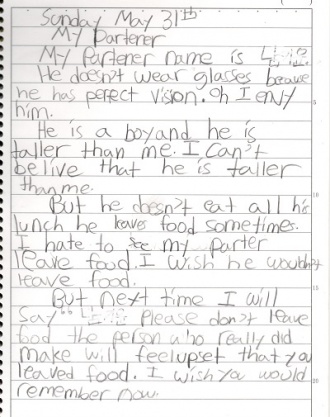 Sunday May 31th
My Partener
My Partener name is
He doesn't wear glasses becaue
he has perfect vision. Oh I envy
him.
He is a boy and he is
taller than me. I Can't
belive that he is taller
than me.
But he doesn't eat all his
lunch he leaves food sometimes.
I hate to see my parter
leave food. I wish he wouldn't
leave food.
But next time I will
Say" Please don't leave
food the person who really did
make will feel upset that you
leaved food. I wish you would
remember now.
5
10
15
20